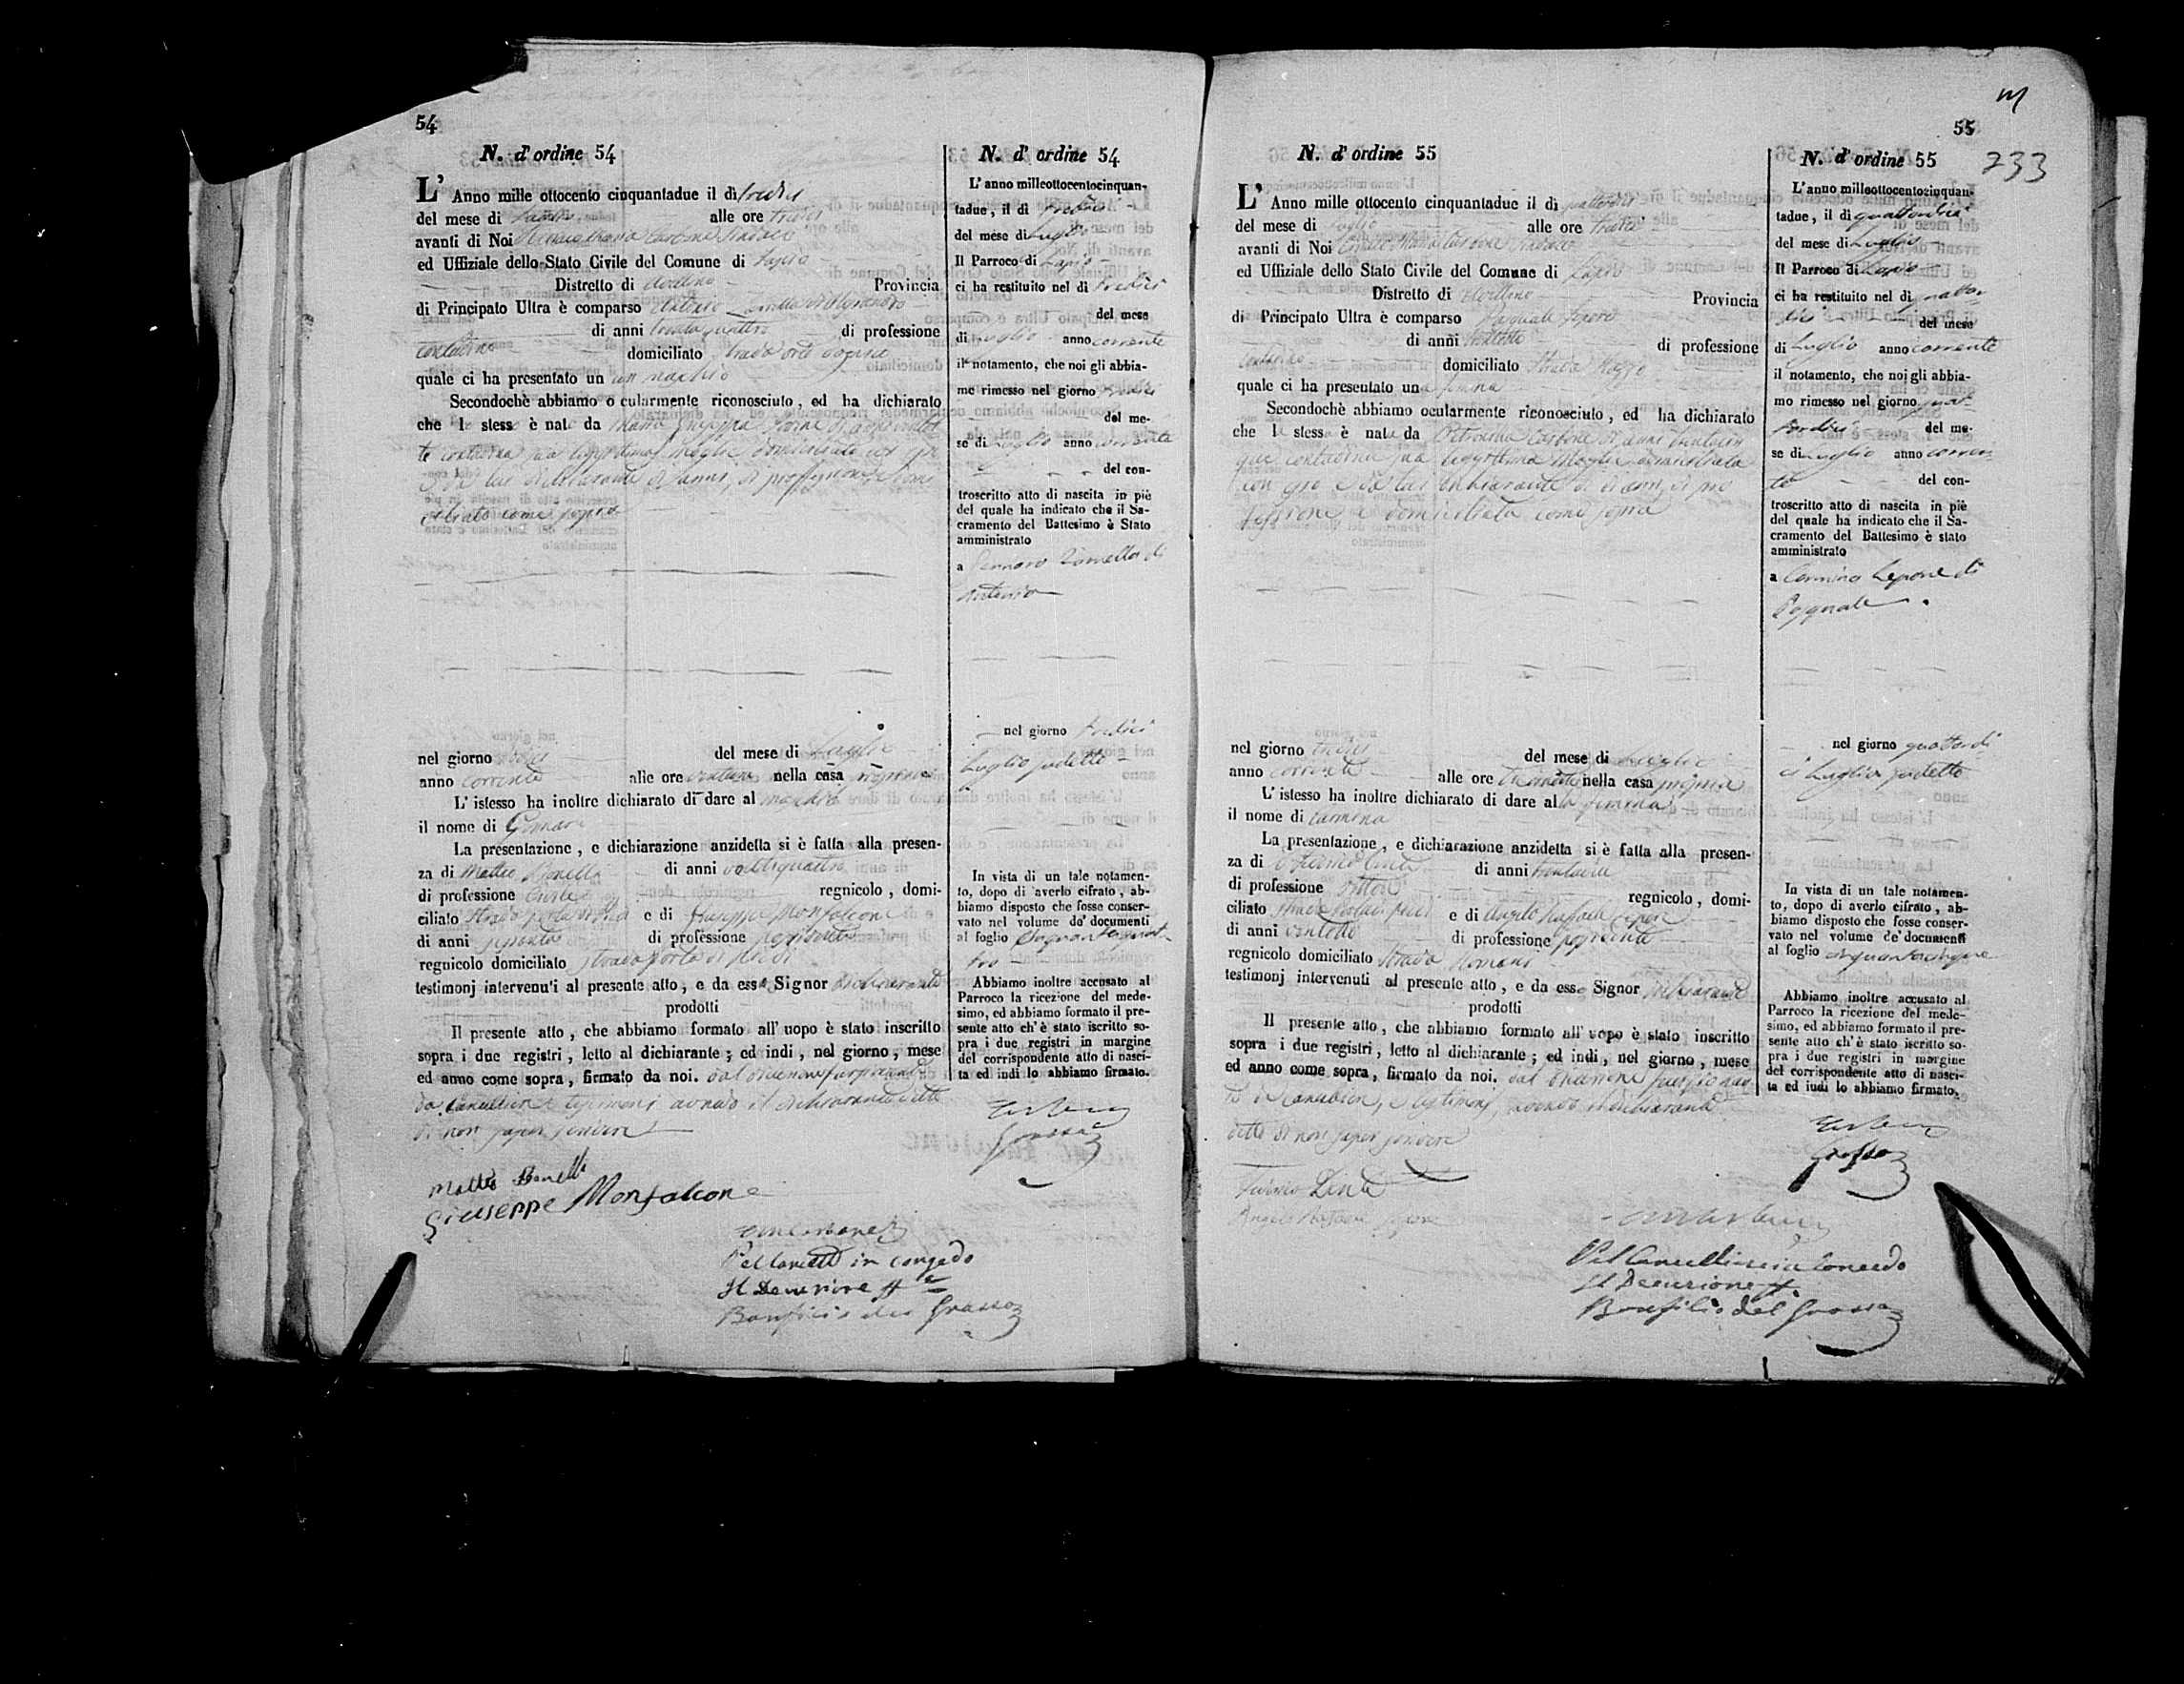 54
N. d'ordine 54
L' Anno mille ottocento cinquantadue il dì tredici
del mese di Luglio alle ore tredici
avanti di Noi Carbone Sindaco
ed Uffiziale dello Stato Civile del Comune di Lapio
Distretto di Avellino Provincia
di Principato Ultra è comparso Antonio
di anni trentaquattro di professione
contadino domiciliato strada
quale ci ha presentato un un maschio
Secondochè abbiamo o cularmente riconosciuto, ed ha dichiarato
che l stess è nat da Maria Giuseppa di anni
contadina sua legittima moglie domiciliata con
e da lui dichiarante di anni, di professione e domi
ciliato come sopra
nel giorno del mese di Luglio
anno corrente alle ore nella casa propria
L' istesso ha inoltre dichiarato di dare al maschio
il nome di Gennaro
La presentazione, e dichiarazione anzidetta si è fatta alla presen-
za di Matteo Bonelli di anni ventiquattro
di professione Civile regnicolo, domi-
ciliato strada e di Giuseppe Monfalcone
di anni sessanta di professione possidente
regnicolo domiciliato strada porta di
testimonj intervenuti al presente atto, e da esso Signor dichiarante
prodotti
Il presente atto, che abbiamo formato all' uopo è stato inscritto
sopra i due registri, letto al dichiarante; ed indi, nel giorno, mese
ed anno come sopra, firmato da noi. dal Decurione funzionante
da Cancelliere e testimoni avendo il dichiarante detto
di non saper scrivere
Matteo Bonelli
Giuseppe Monfalcone
Pel Cancell in congedo
Il Decurione ff
Bonfilio del Grosso
N. d' ordine 54
L' anno milleottocentocinquan-
tadue, il di tredici
del mese di Luglio
Il Parroco di Lapio
ci ha restituito nel di tredici
del mese
di Luglio anno corrente
il notamento, che noi gli abbia-
mo rimesso nel giorno tredici
del me-
se di Luglio anno corrente
del con-
troscritto atto di nascita in piè
del quale ha indicato che il Sa-
cramento del Battesimo è Stato
amministrato
a Gennaro di
Antonio
nel giorno tredici
Luglio sudetto
In vista di un tale notamen-
to, dopo di averlo cifrato, ab-
biamo disposto che fosse conser-
vato nel volume de' documenti
al foglio cinquantaquat-
tro
Abbiamo inoltre accusato al
Parroco la ricezione del mede-
simo, ed abbiamo formato il pre-
sente atto ch' è stato iscritto so-
pra i due registri in margine
del corrispondente atto di nasci-
ta ed indi lo abbiamo firmato.
Grosso
55
233
N. d' ordine 55
L' Anno mille ottocento cinquantadue il dì quattordici
del mese di Luglio alle ore tredici
avanti di Noi Carbone Sindaco
ed Uffiziale dello Stato Civile del Comune di Lapio
Distretto di Avellino Provincia
di Principato Ultra è comparso Pasquale Lepore
di anni ventotto di professione
contadino domiciliato strada
quale ci ha presentato una femina
Secondochè abbiamo ocularmente riconosciuto, ed ha dichiarato
che la stessa è nata da Carbone di anni venticin
que contadina sua legittima Moglie domiciliata
con esso e da lui dichiarante di anni, di pro
fessione e domiciliato come sopra
nel giorno tredici del mese di Luglio
anno corrente alle ore nella casa propria
L' istesso ha inoltre dichiarato di dare alla femina
il nome di Carmina
La presentazione, e dichiarazione anzidetta si è fatta alla presen-
za di di anni
di professione regnicolo, domi-
ciliato strada e di Angelo Raffaele Lepore
di anni ventotto di professione possidente
regnicolo domiciliato strada
testimonj intervenuti al presente atto, e da esso Signor dichiarante
prodotti
Il presente atto, che abbiamo formato all' uopo è stato inscritto
sopra i due registri, letto al dichiarante; ed indi, nel giorno, mese
ed anno come sopra, firmato da noi. dal Decurione funzionan
te da Cancelliere, e testimoni, avendo il dichiarante
detto di non saper scrivere
Angelo Raffaele Lepore
Pel Cancelliere in Concedo
Il Decurione ff
Bonfilio del Grosso
N. d' ordine 55
L' anno milleottocentocinquan-
tadue, il di quattordici
del mese di Luglio
Il Parroco di Lapio
ci ha restituito nel di quattor
dici del mese
di Luglio anno corrente
il notamento, che noi gli abbia-
mo rimesso nel giorno quat-
tordici del me-
se di Luglio anno corren
te del con-
troscritto atto di nascita in piè
del quale ha indicato che il Sa-
cramento del Battesimo è stato
amministrato
a Carmina Lepore di
Pasquale
nel giorno quattordi
ci Luglio sudetto
In vista di un tale notamen-
to, dopo di averlo cifrato, ab-
biamo disposto che fosse conser-
vato nel volume de' documenti
al foglio cinquantacinque
Abbiamo inoltre accusato al
Parroco la ricezione del mede-
simo, ed abbiamo formato il pre-
sente atto ch' è stato iscritto so-
pra i due registri in margine
del corrispondente atto di nasci-
ta ed indi lo abbiamo firmato.
Grosso